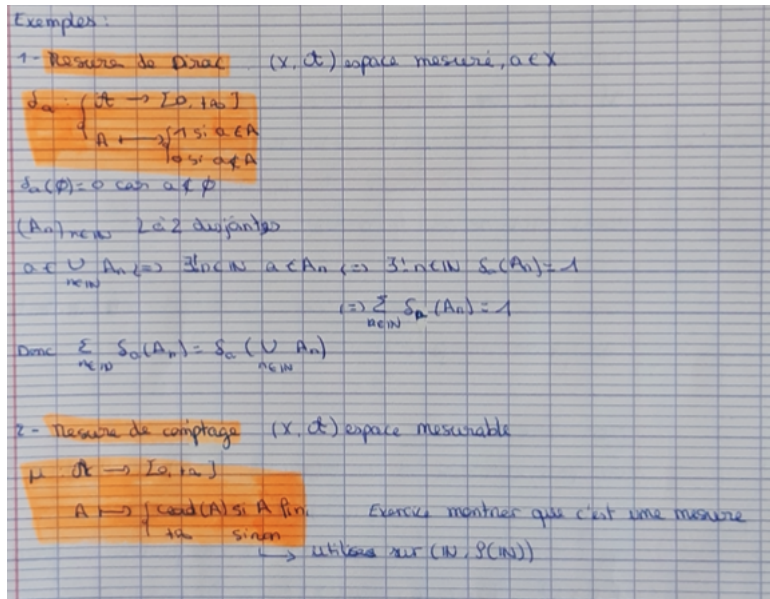 Exemples :
1- Mesure de Dirac (X, 𝒜) espace mesuré, a ∈ X
δₐ : { 𝒜 → [0, +∞]
A ↦ { 1 si a ∈ A
0 si a ∉ A
δₐ(∅) = 0 car a ∉ ∅
(Aₙ)ₙ∈ℕ 2 à 2 disjointes
a ∈ ∪ₙ∈ℕ Aₙ <=> ∃!n∈ℕ a ∈ Aₙ <=> ∃!n∈ℕ δₐ(Aₙ) = 1
<=> Σₙ∈ℕ δₐ(Aₙ) = 1
Donc Σₙ∈ℕ δₐ(Aₙ) = δₐ(∪ₙ∈ℕ Aₙ)
2- Mesure de comptage (X, 𝒜) espace mesurable
μ : 𝒜 → [0, +∞]
A ↦ { card(A) si A fini Exercice montrer que c'est une mesure
+∞ sinon
↳ utilisée sur (ℕ, 𝒫(ℕ))